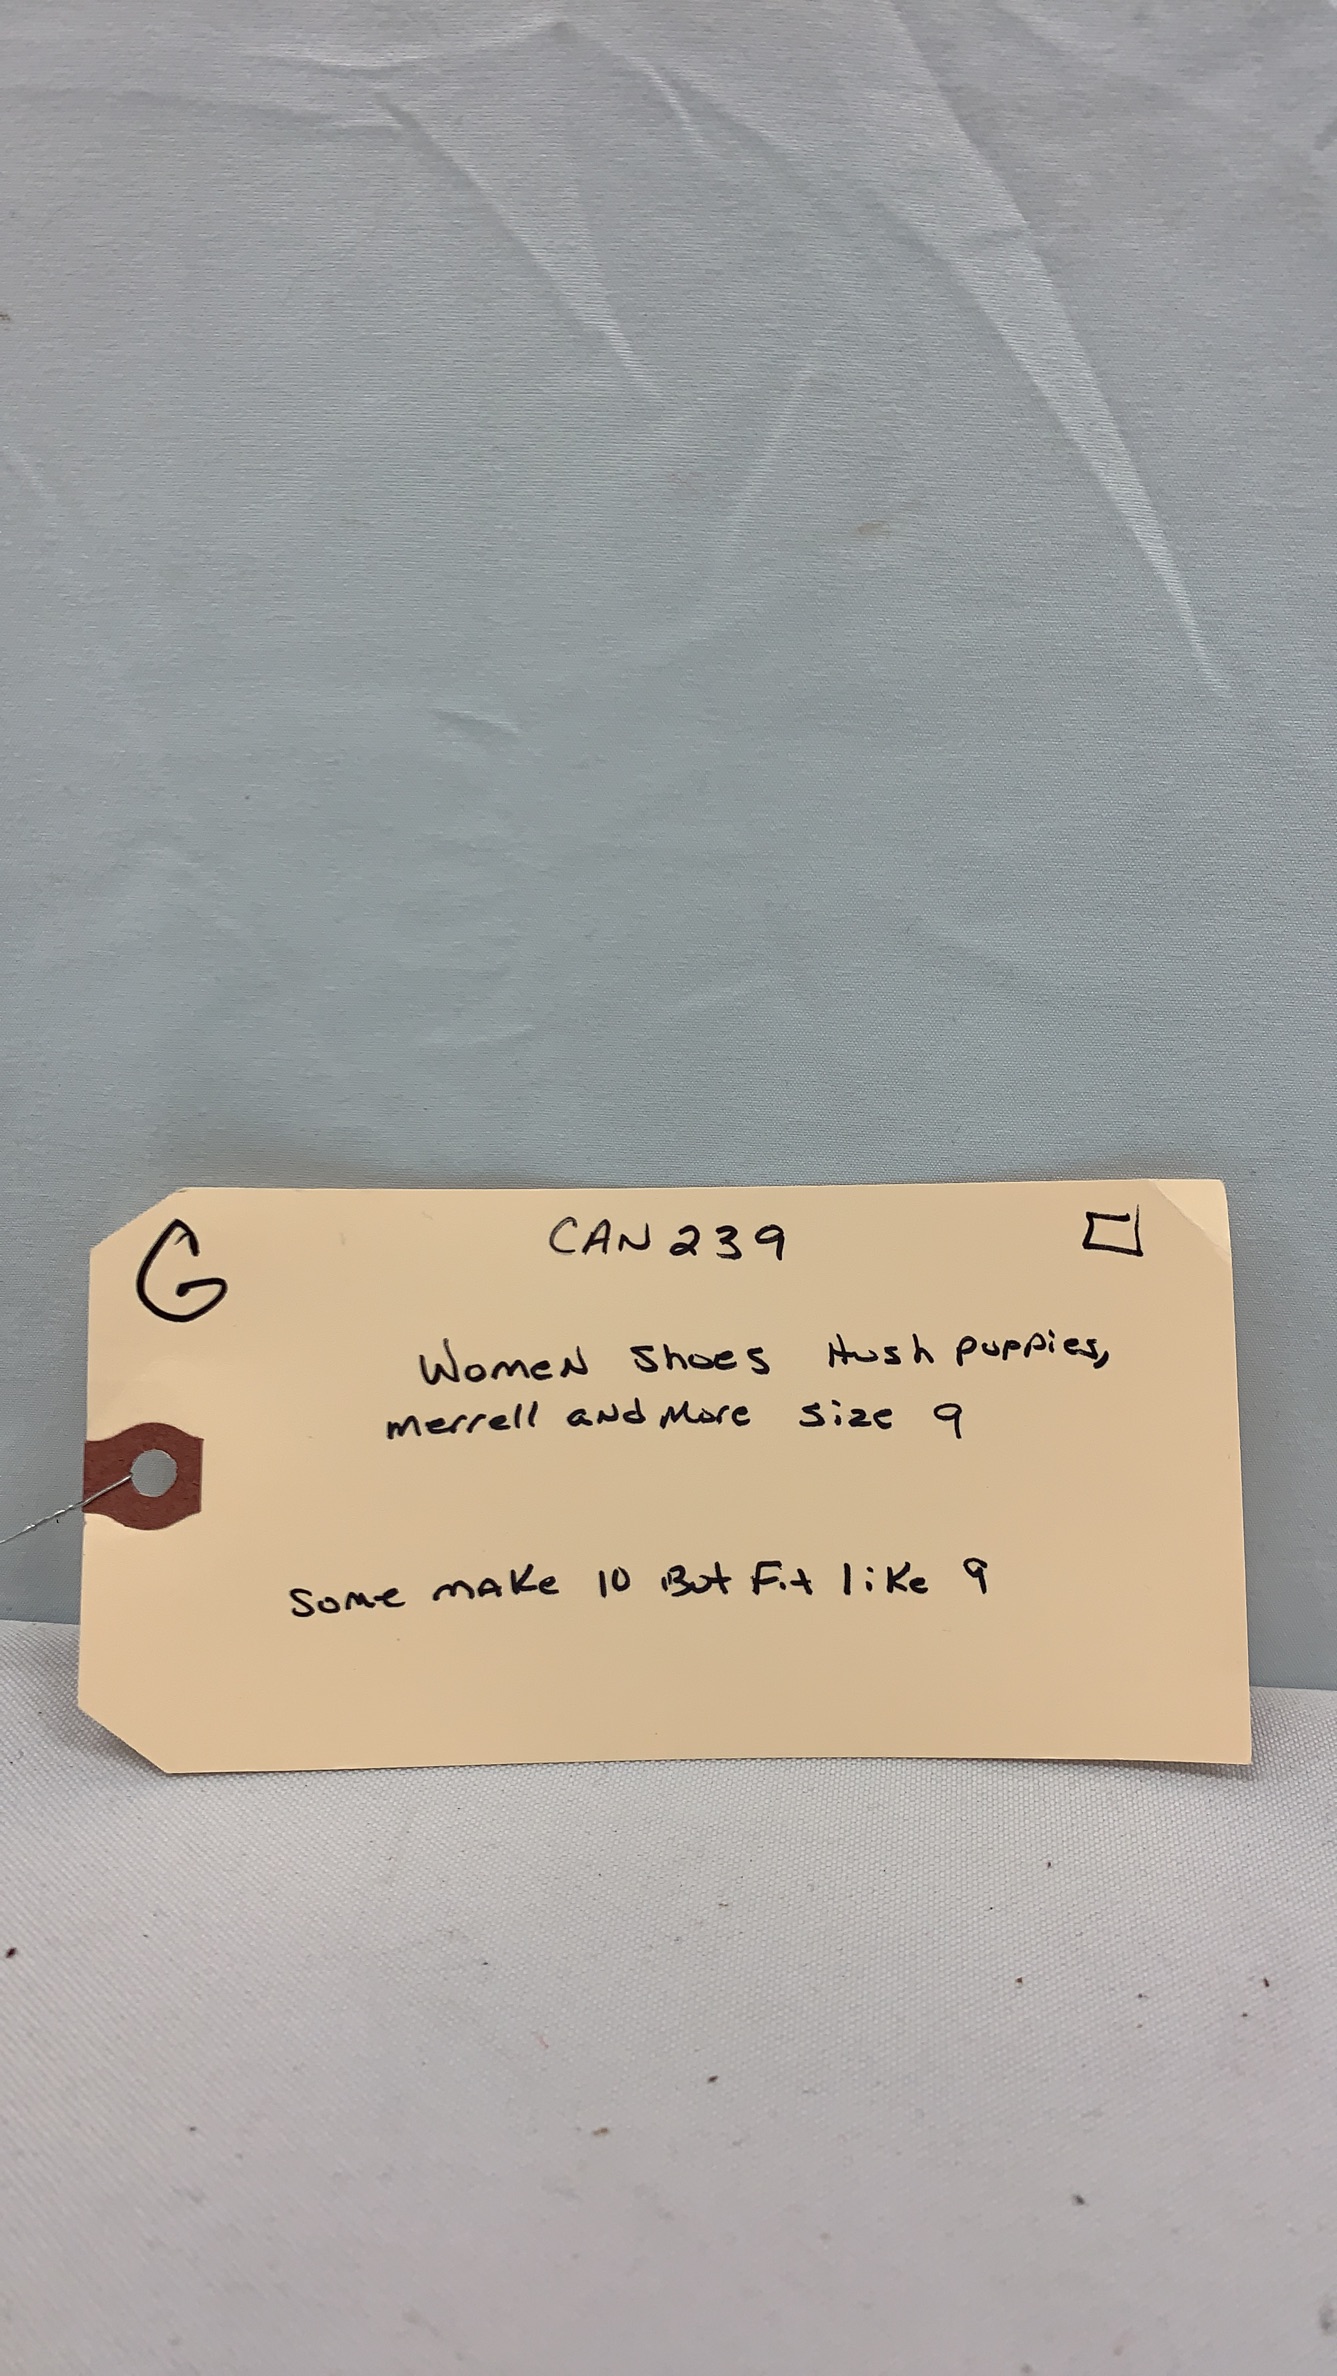 G
CAN 239
Women Shoes Hush puppies,
merrell and More size 9
Some make 10 But Fit like 9